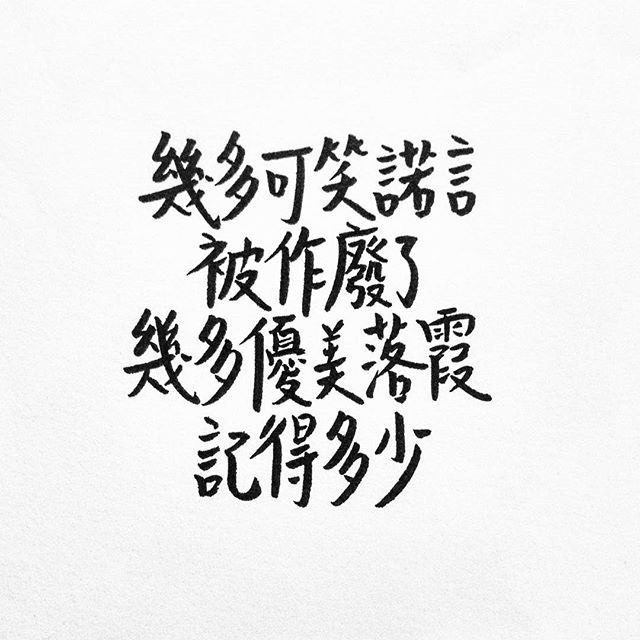 幾多可笑諾言
被作廢了
幾多優美落霞
記得多少